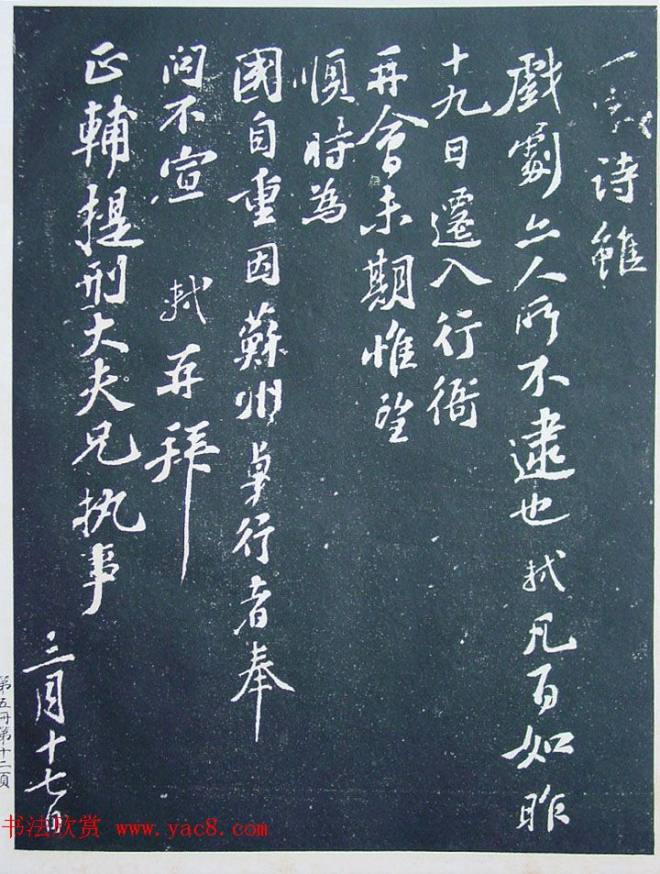 一
诗雖
戲劇亦人所不逮也軾凡百如昨
十九日遷入行衙
再會未期惟望
順時為
國自重因蘇州卓行者奉
問不宣 軾再拜
正輔提刑大夫兄执事
三月十七日
第五冊第十二頁
书法欣赏 www.yac8.com